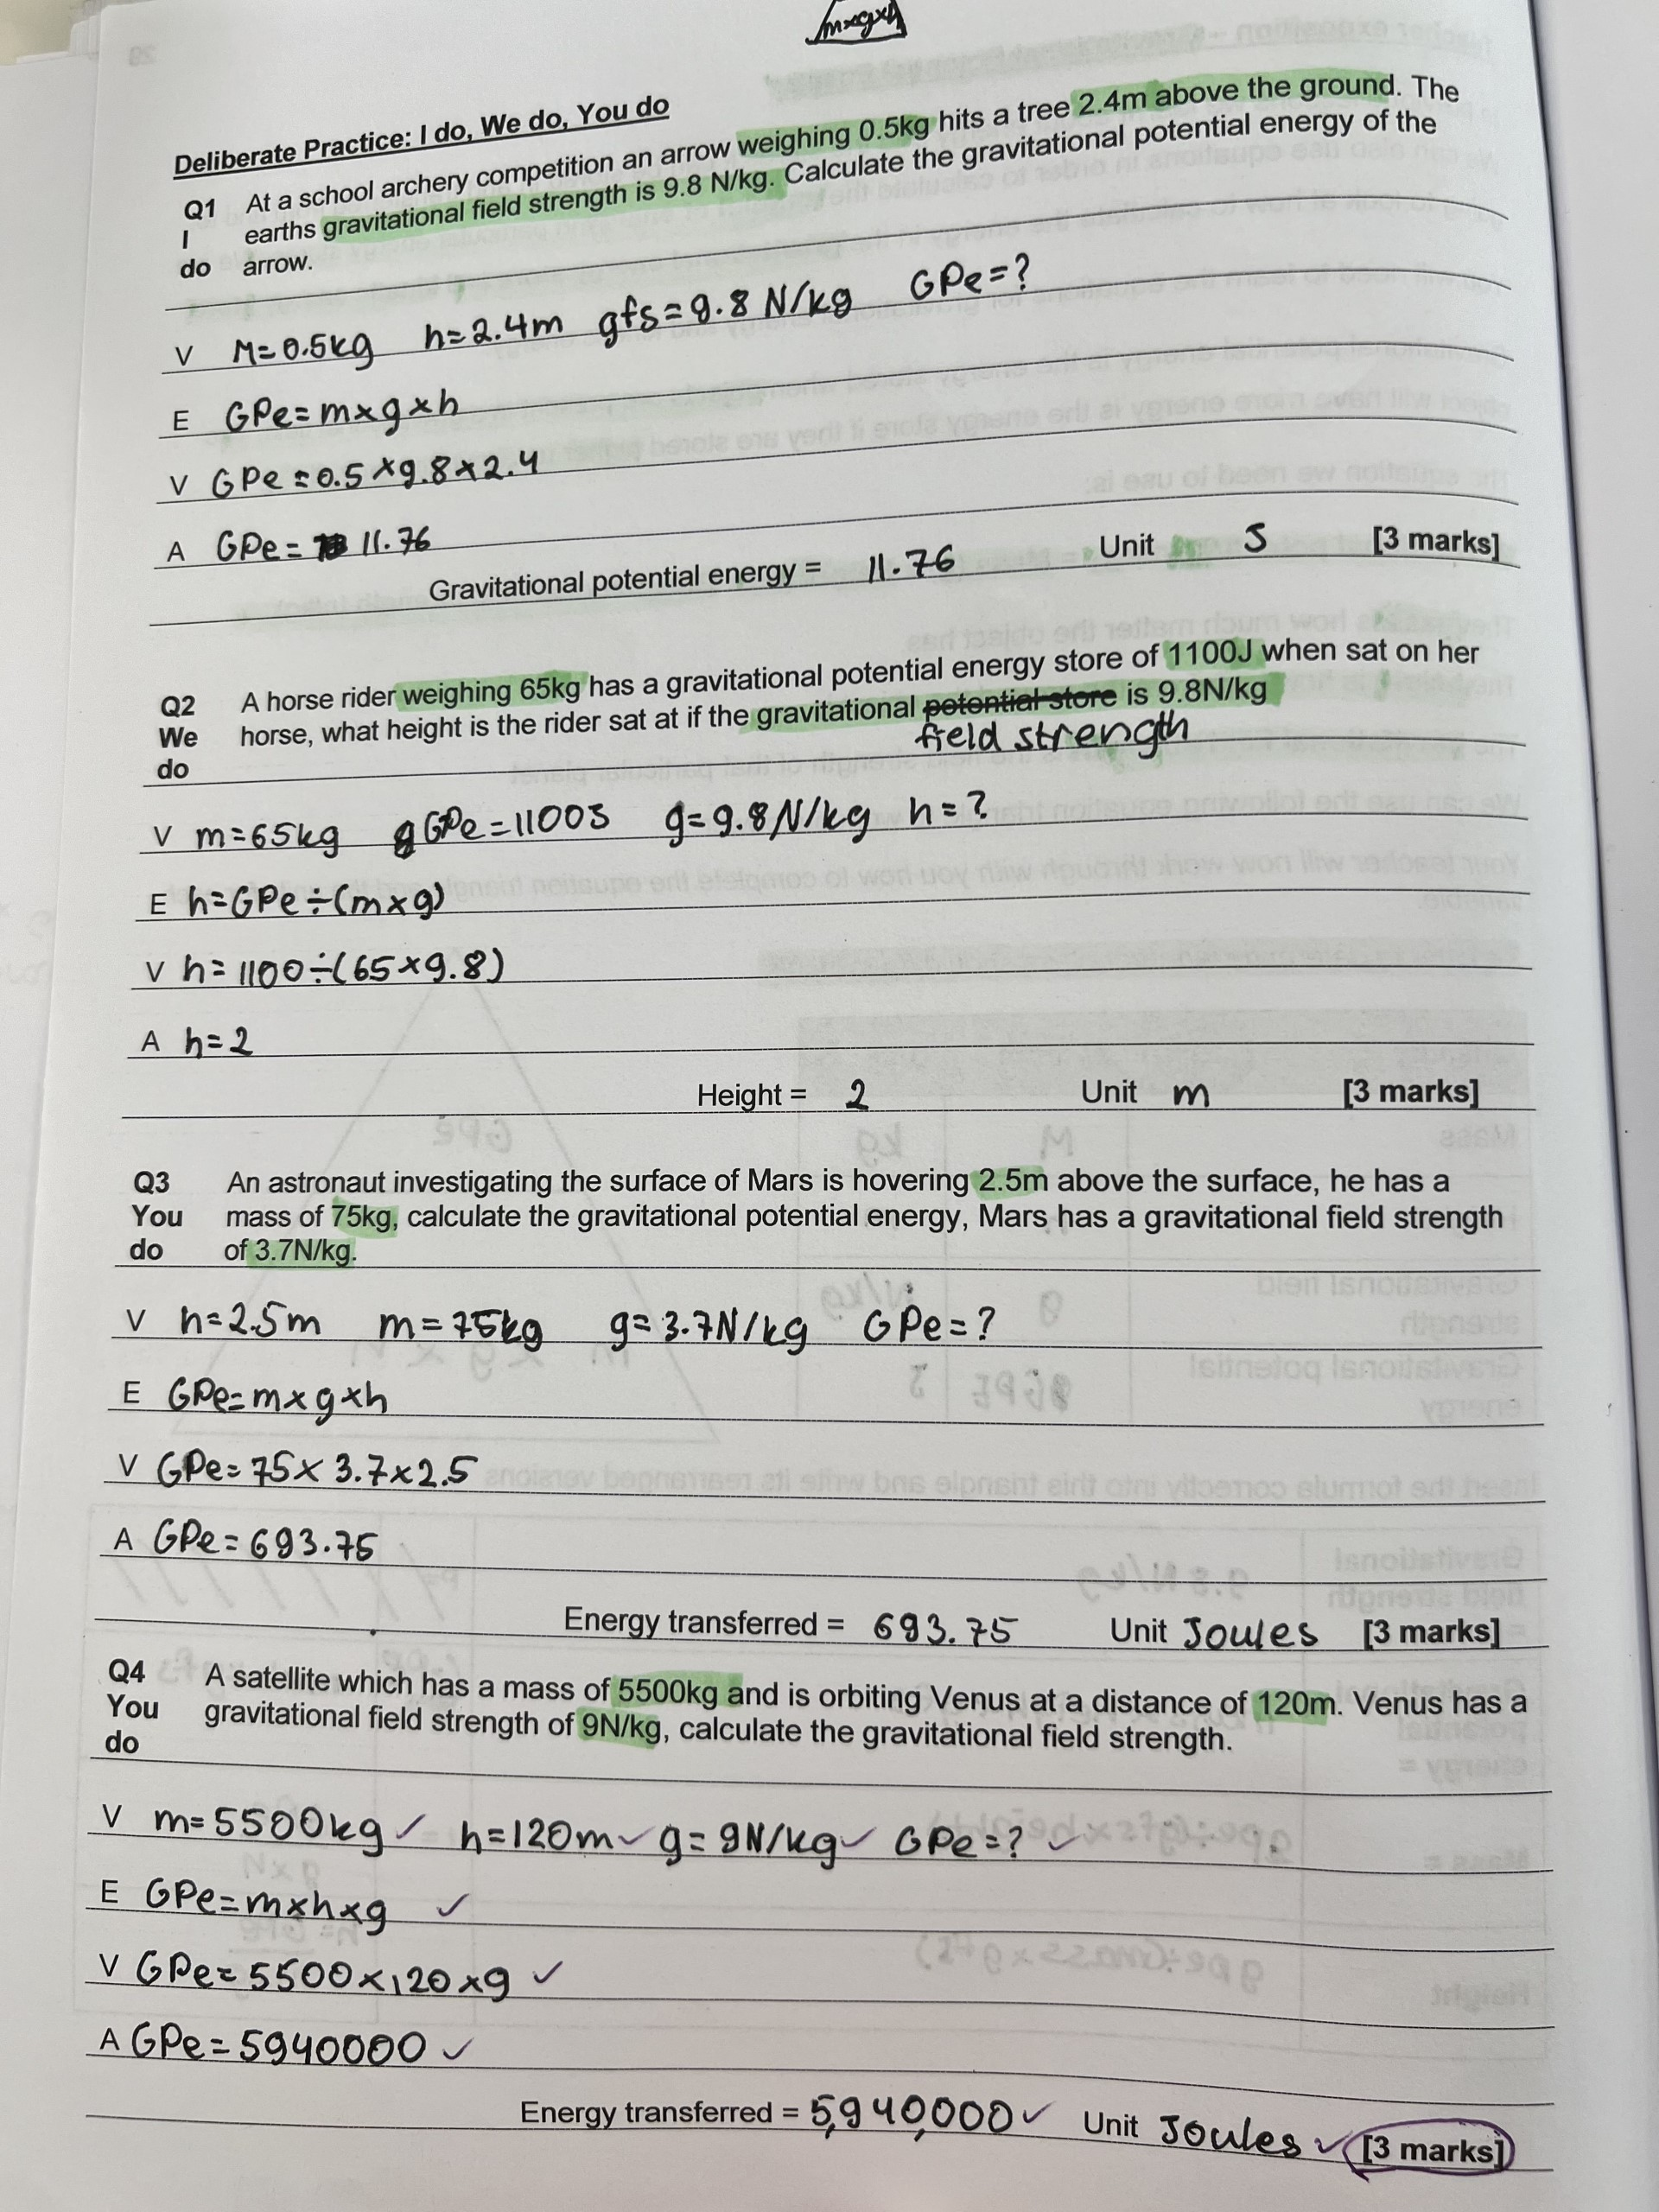 m×g×h
Deliberate Practice: I do, We do, You do
Q1 At a school archery competition an arrow weighing 0.5kg hits a tree 2.4m above the ground. The
I earths gravitational field strength is 9.8 N/kg. Calculate the gravitational potential energy of the
do arrow.
V M=0.5kg h=2.4m gfs=9.8 N/kg GPe=?
E GPe=m×g×h
V GPe=0.5×9.8×2.4
A GPe= 11.76
Gravitational potential energy = 11.76 Unit J [3 marks]
Q2 A horse rider weighing 65kg has a gravitational potential energy store of 1100J when sat on her
We horse, what height is the rider sat at if the gravitational potential store is 9.8N/kg
do field strength
V m=65kg GPe=1100J g=9.8N/kg h=?
E h=GPe÷(m×g)
V h=1100÷(65×9.8)
A h=2
Height = 2 Unit m [3 marks]
Q3 An astronaut investigating the surface of Mars is hovering 2.5m above the surface, he has a
You mass of 75kg, calculate the gravitational potential energy, Mars has a gravitational field strength
do of 3.7N/kg.
V h=2.5m m=75kg g=3.7N/kg GPe=?
E GPe=m×g×h
V GPe=75×3.7×2.5
A GPe=693.75
Energy transferred = 693.75 Unit Joules [3 marks]
Q4 A satellite which has a mass of 5500kg and is orbiting Venus at a distance of 120m. Venus has a
You gravitational field strength of 9N/kg, calculate the gravitational field strength.
do
V m=5500kg ✓ h=120m ✓ g=9N/kg ✓ GPe=? ✓
E GPe=m×h×g ✓
V GPe=5500×120×9 ✓
A GPe=5940000 ✓
Energy transferred = 5,940,000 ✓ Unit Joules ✓ [3 marks]